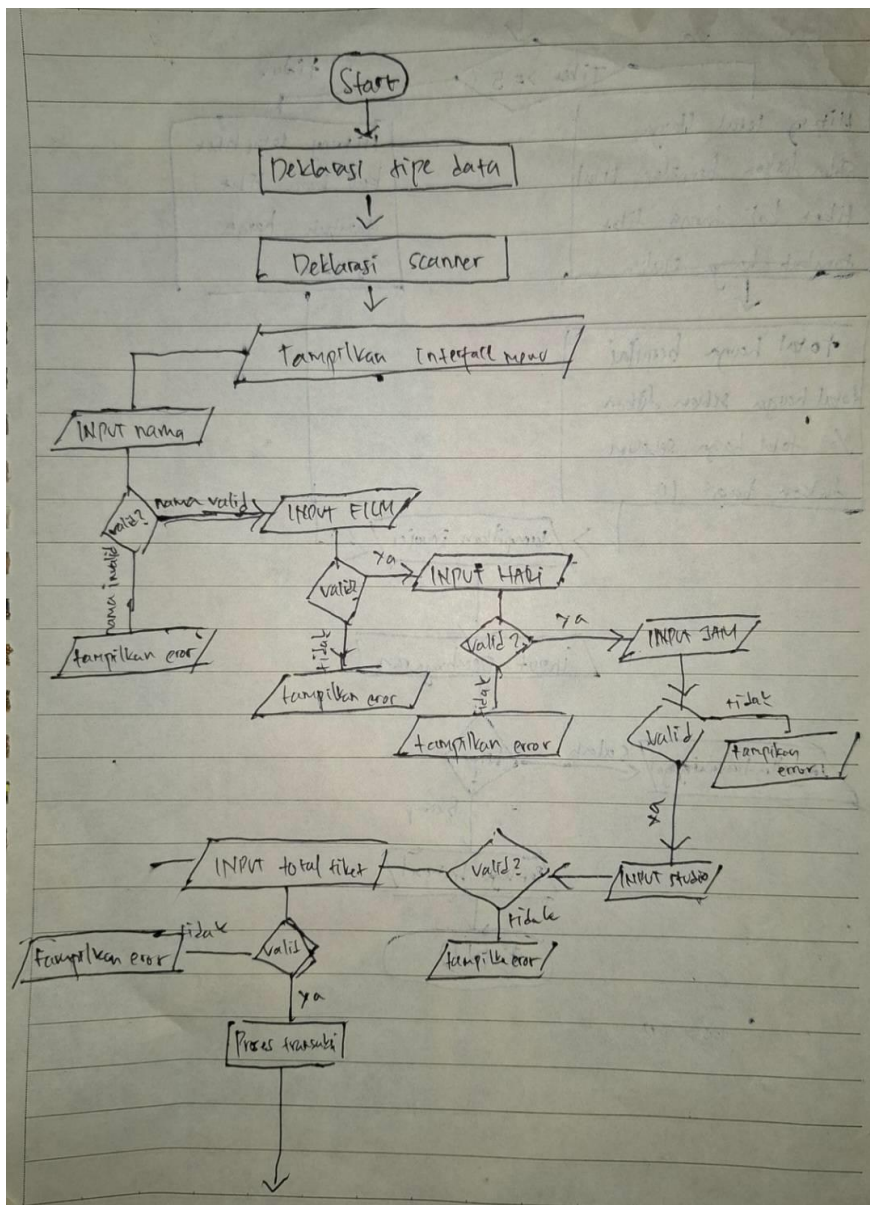 Start
Deklarasi tipe data
Deklarasi scanner
tampilkan interface menu
INPUT nama
valid?
nama valid
nama invalid
tampilkan eror
INPUT FILM
valid?
ya
tidak
tampilkan eror
INPUT HARI
valid?
ya
tidak
tampilkan error
INPUT JAM
valid
tidak
tampilkan
error!
ya
INPUT studio
valid?
tidak
tampilka eror
INPUT total tiket
valid
tidak
tampilkan eror
ya
Proses transaksi